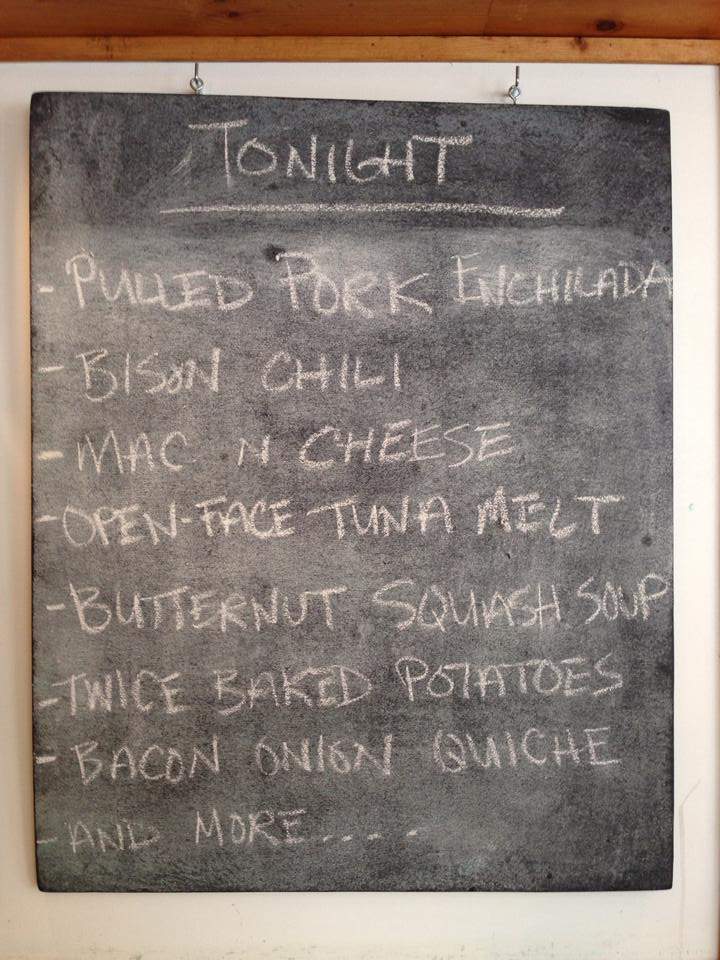 TONIGHT
- PULLED PORK ENCHILADA
- BISON CHILI
- MAC N CHEESE
- OPEN-FACE TUNA MELT
- BUTTERNUT SQUASH SOUP
- TWICE BAKED POTATOES
- BACON ONION QUICHE
- AND MORE.....